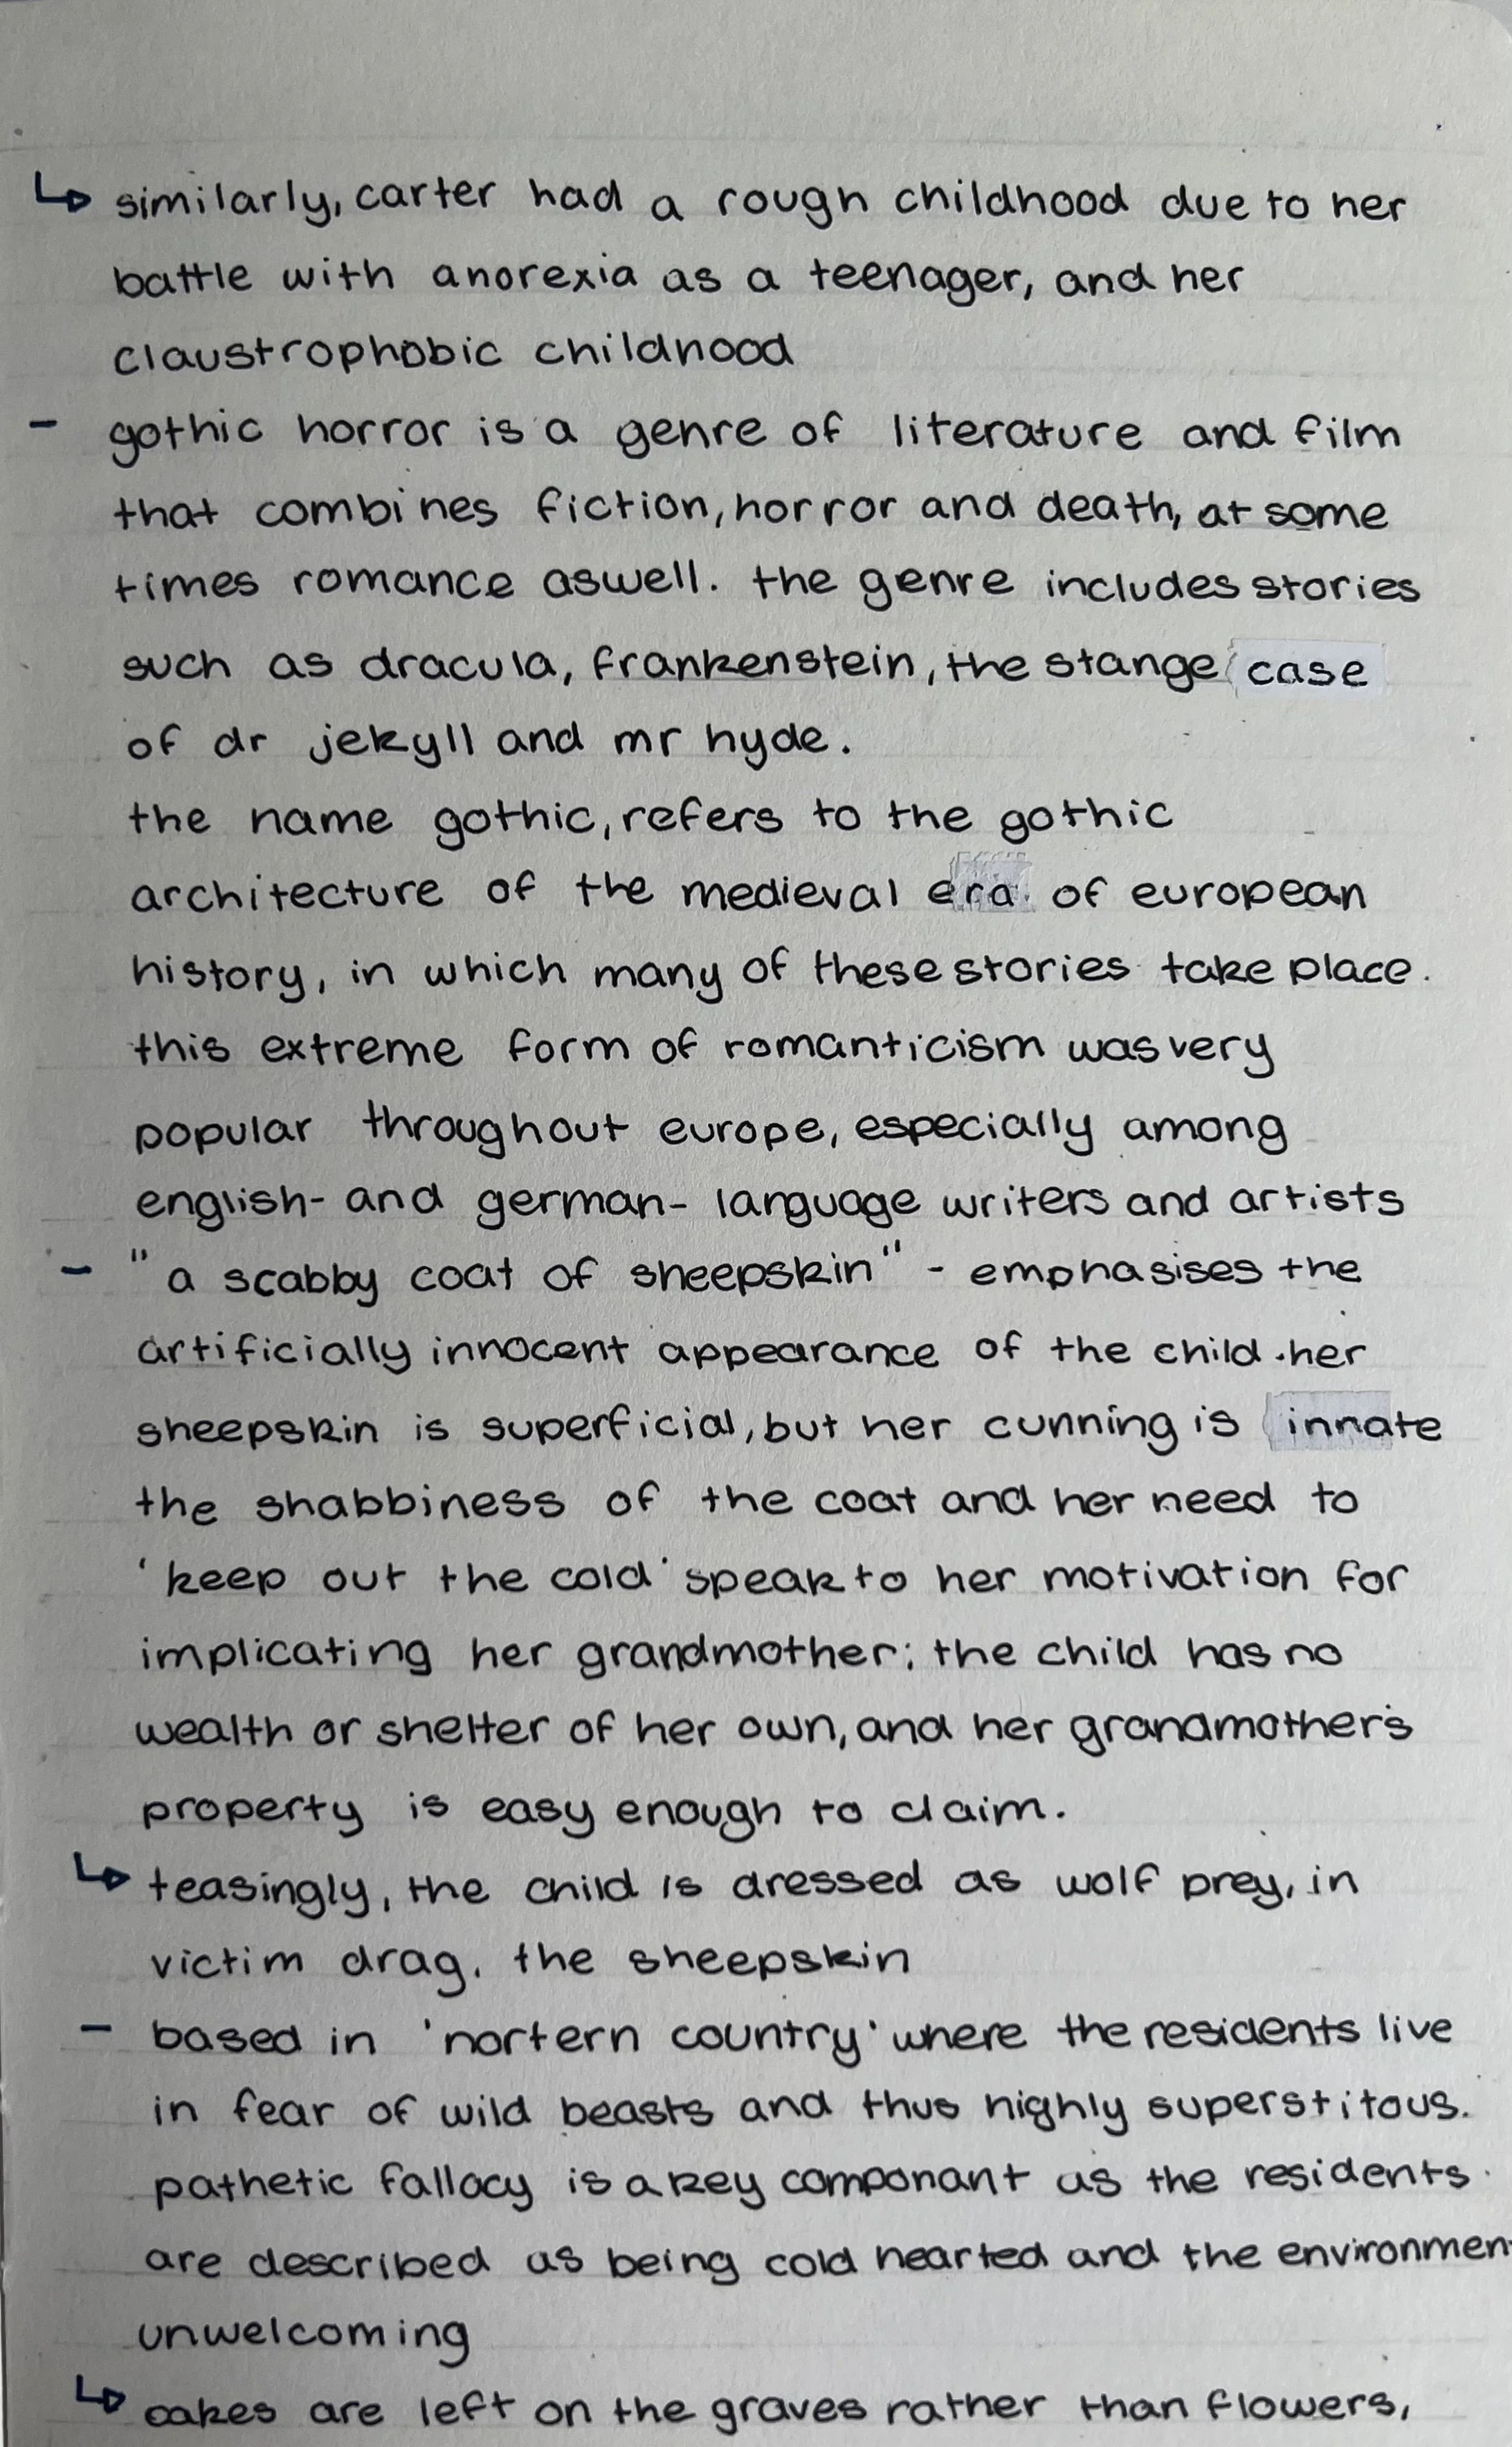 ↳ similarly, carter had a rough childhood due to her
battle with anorexia as a teenager, and her
claustrophobic childhood
- gothic horror is a genre of literature and film
that combines fiction, horror and death, at some
times romance aswell. the genre includes stories
such as dracula, frankenstein, the stange case
of dr jekyll and mr hyde.
the name gothic, refers to the gothic
architecture of the medieval era of european
history, in which many of these stories take place.
this extreme form of romanticism was very
popular throughout europe, especially among
english- and german- language writers and artists
- "a scabby coat of sheepskin" - emphasises the
artificially innocent appearance of the child. her
sheepskin is superficial, but her cunning is innate
the shabbiness of the coat and her need to
'keep out the cold' speak to her motivation for
implicating her grandmother; the child has no
wealth or shelter of her own, and her grandmother's
property is easy enough to claim.
↳ teasingly, the child is dressed as wolf prey, in
victim drag. the sheepskin
- based in 'nortern country' where the residents live
in fear of wild beasts and thus highly superstitous.
pathetic fallacy is a key componant as the residents
are described as being cold hearted and the environmen
unwelcoming
↳ cakes are left on the graves rather than flowers,